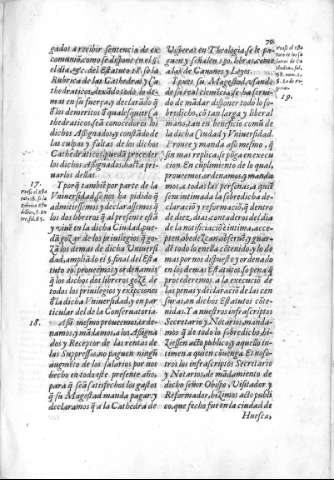 gados a recibir sentencia de ex
comunion como se dispone en el §.
el dia, &c. del Estatuto 18. so la
Rubrica de las Cathedras y Ca
thedraticos, dexãdo todo lo de-
mas en su fuerça y declarãdo q̃
los demeritos de qualesquier Ca
thedraticos, seã conoscidos en los
dichos Asignados; y constãdo de
las culpas y faltas de los dichos
Cathedraticos puedã proceder
los dichos Asignados, hasta pri-
uarlos dellas.
17.
Y porq̃ tambiẽ por parte de la
Vniuersidad se nos ha pidido q̃
admitiessemos y declarassemos q̃
los dos libreros q̃ al presente estã
y viuẽ en la dicha Ciudad, pue-
dã gozar de los priuilegios q̃ go-
zã los demas de dicha Vniuersi-
dad, ampliãdo el §. final del Esta
tuto 10. proueemos y ordenamos
q̃ los dichos dos libreros gozẽ de
todos los priuilegios y exẽpciones
de la dicha Vniuersidad, y en par
ticular del de la Conseruatoria.
18.
Assi mesmo proueemos, orde-
namos, y mãdamos, a los Asigna
dos y Receptor de las rentas de
las Suppressas, no paguen ningũ
augmẽto de los salarios por nos
hecho en todo este presente año,
para q̃ seã satisfechos los gastos
q̃ su Magestad manda pagar: y
declaramos q̃ a la Cathedra de
76
Visperas en Theologia, se le pa-
guen y señalen 150. libras, como
a las de Canones y Leyes.
19.
Y pues su Magestad, vsando
de su real clemẽcia, se ha serui-
do de mãdar disponer todo lo so-
bredicho, cõ tan larga y liberal
mano, tan en beneficio comũ de
la dicha Ciudad y Vniuersidad.
Prouee y manda assi mesmo, q̃
sin mas replica, se põga en execu
ciõ. En cũplimiento de lo qual,
proueemos, ordenamos, y manda-
mos, a todas las personas, a quiẽ
sera intimada la sobredicha de-
claraciõ y reformaciõ, q̃ dentro
de diez dias contaderos del dia
de la notificaciõ e intima, acce-
pten, obedezcan, obseruẽ y guar-
dẽ todo lo en ella cõtenido, y lo de
mas por nos dispuesto y ordenado
en los demas Estatutos, so pena q̃
procederemos a la execuciõ de
las penas y declaraciõ de las cen
suras, en dichos Estatutos cõte-
nidas. Y a nuestros infrascriptos
Secretario y Notario, manda-
mos q̃ de todo lo sobredicho hi-
ziessen acto publico, y aquello in-
timen a quien cõuenga. E nosotros
los infrascriptos Secretario
y Notario, de mãdamiento de
dicho señor Obispo, Visitador y
Reformador, hizimos acto publi
co, que fecho fue en la ciudad de
Huesca,